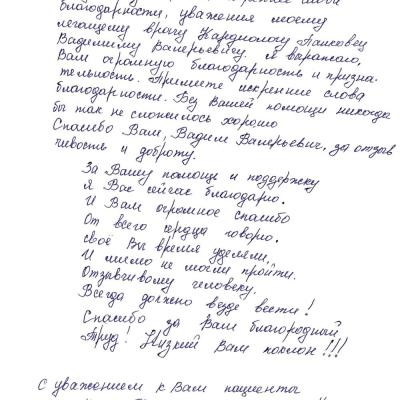 благодарности, уважения моему
лечащему врачу Кардиологу Панковец
Вадимиму Валерьевичу. Я выражаю,
Вам огромную благодарность и призна-
тельность. Примите искренние слова
благодарности. Без Вашей помощи никогда
бы так не сложилось хорошо
Спасибо Вам, Вадим Валерьевич, за отзыв
чивость и доброту.
За Вашу помощь и поддержку
Я Вас сейчас благодарю.
И Вам огромное спасибо
От всего сердца говорю.
Своё Вы время уделяли,
И мимо не могли пройти.
Отзывчивому человеку,
Всегда должно везде везти!
Спасибо за Ваш благородный
Труд! Низкий Вам поклон!!!
С уважением к Вам пациенты